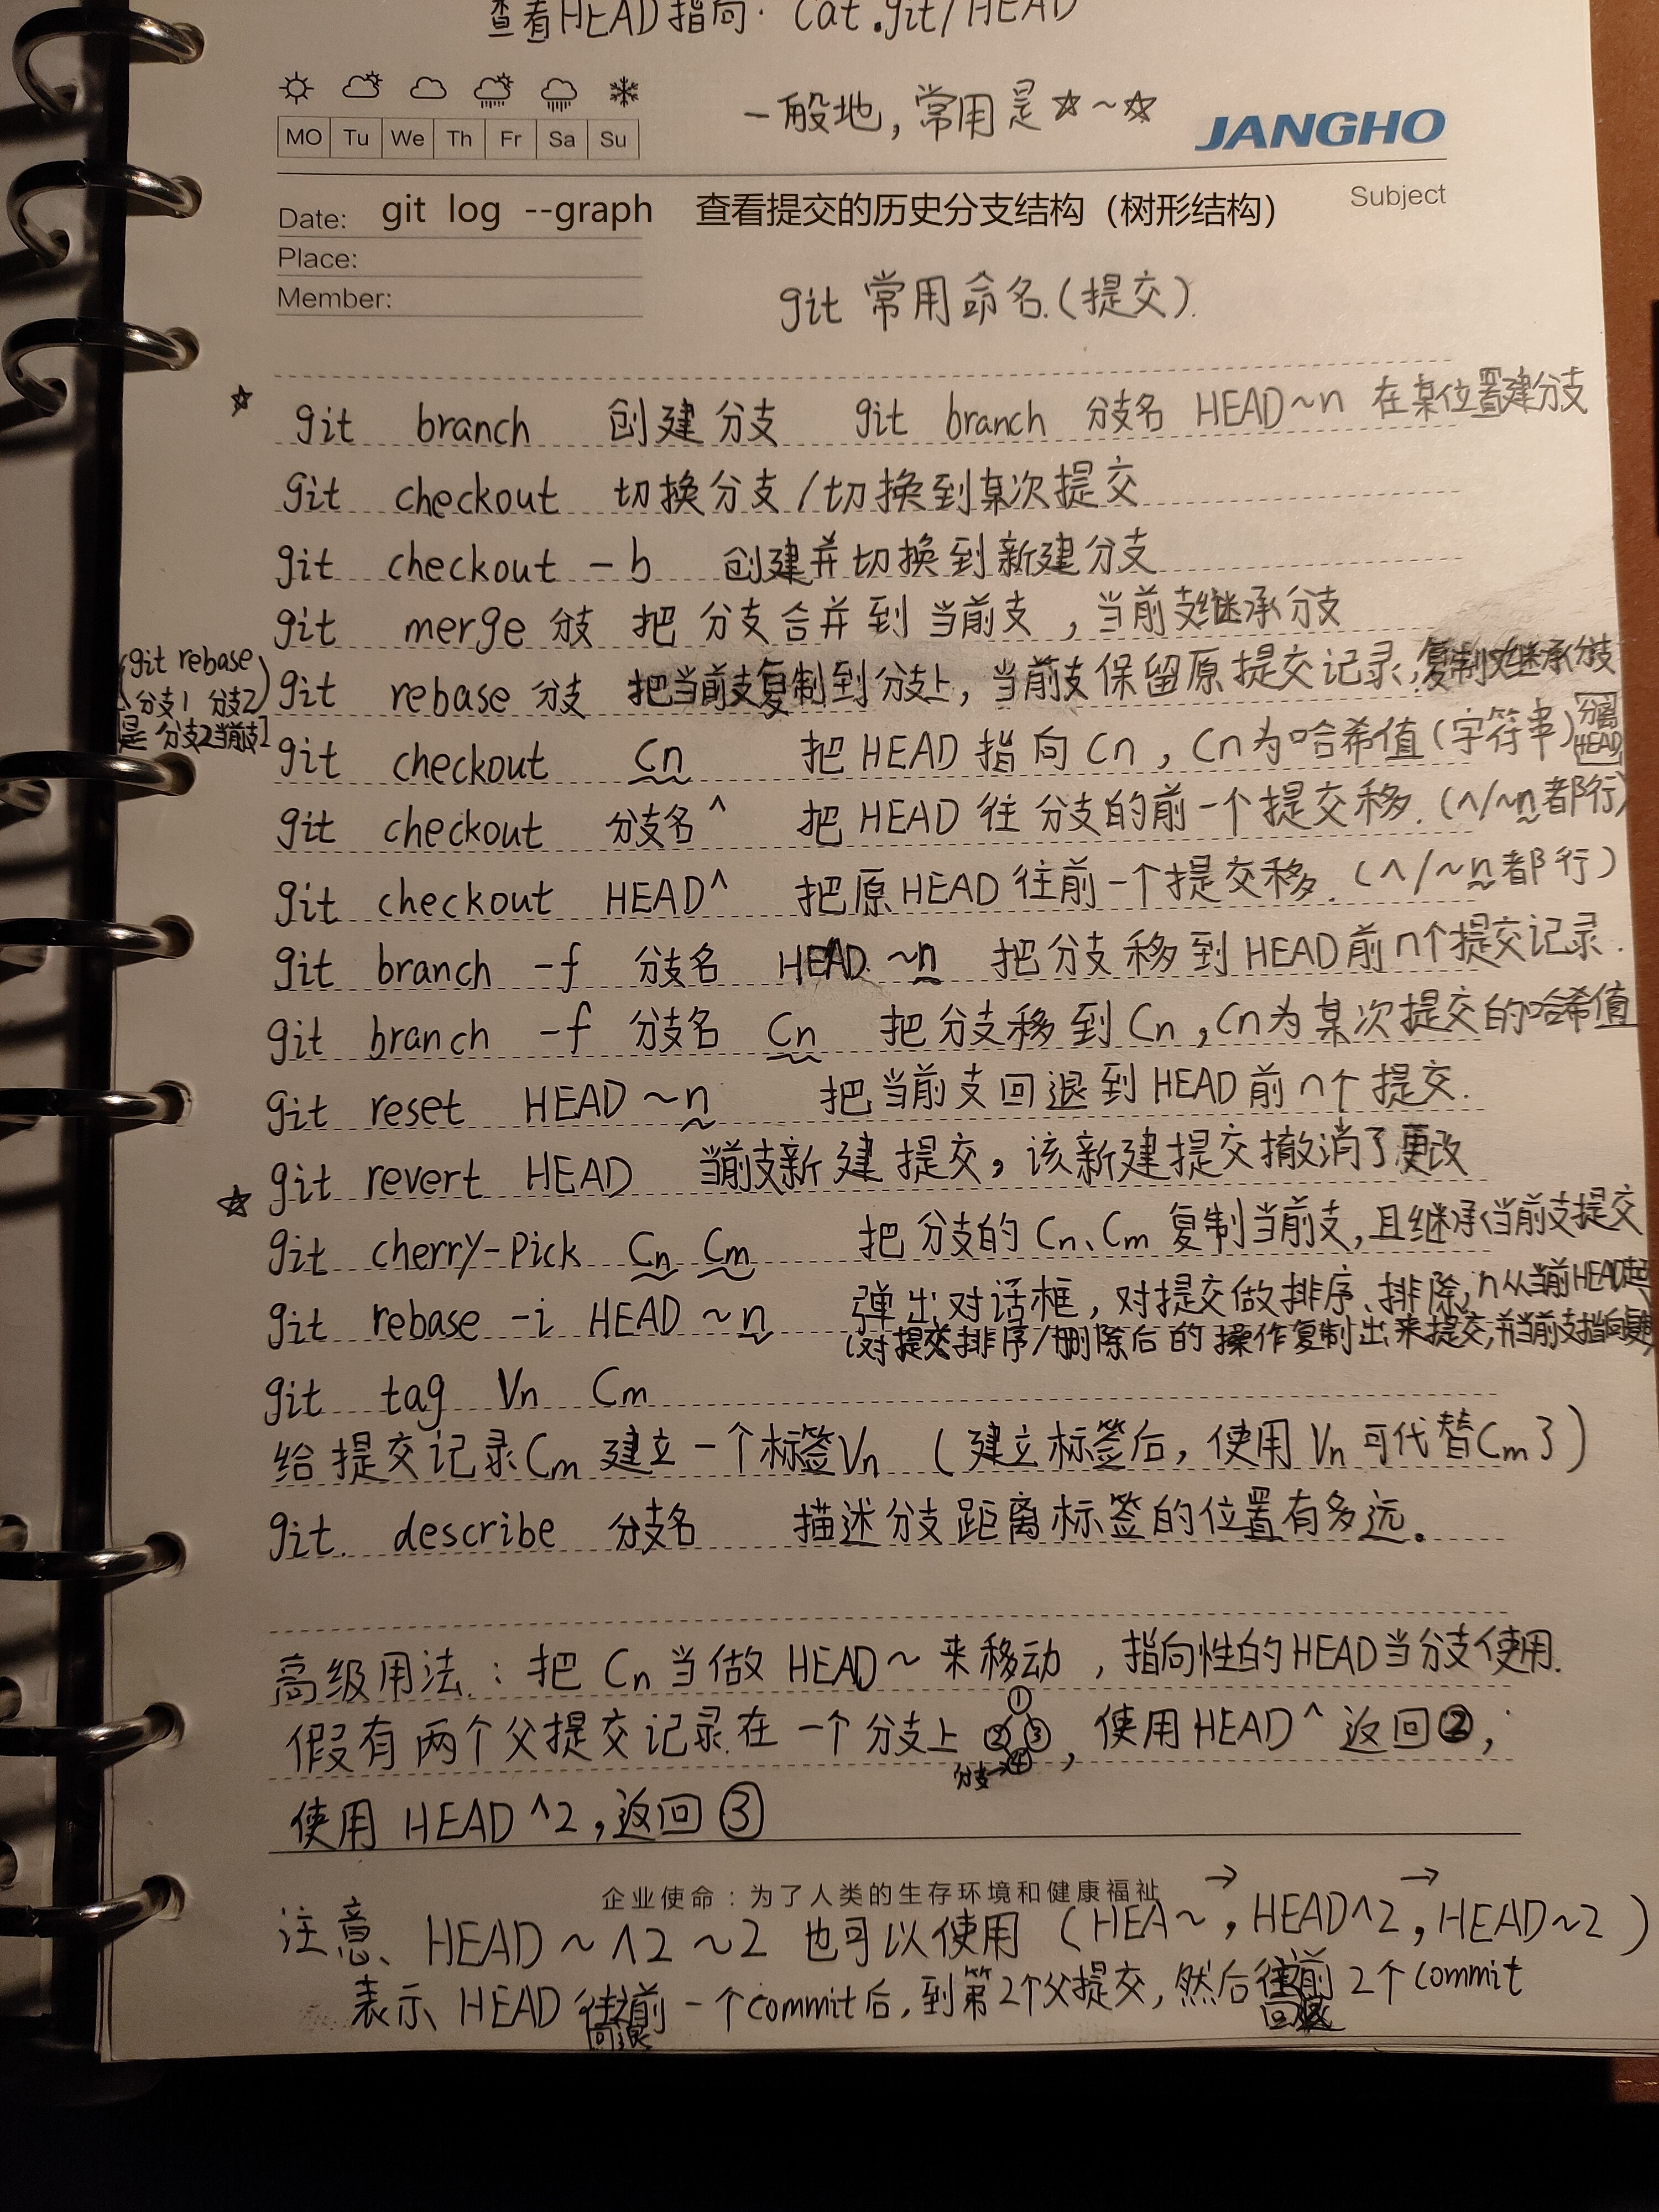 查看HEAD指向. cat .git/HEAD
一般地,常用是☆~☆
JANGHO
MO Tu We Th Fr Sa Su
Date: git log --graph 查看提交的历史分支结构（树形结构）
Subject
Place:
Member:
git 常用命名.(提交).
☆ git branch 创建分支 git branch 分支名 HEAD~n 在某位置建分支
git checkout 切换分支/切换到某次提交
git checkout -b 创建并切换到新建分支
git merge 分支 把分支合并到当前支,当前支继承分支
(git rebase 分支1 分支2)
是分支2当前支]
git rebase 分支 把当前支复制到分支上,当前支保留原提交记录,复制支继承分支
git checkout Cn 把HEAD指向Cn,Cn为哈希值(字符串) 分离HEAD
git checkout 分支名^ 把HEAD往分支的前一个提交移.(^/~n都行)
git checkout HEAD^ 把原HEAD往前一个提交移.(^/~n都行)
git branch -f 分支名 HEAD~n 把分支移到HEAD前n个提交记录.
git branch -f 分支名 Cn 把分支移到Cn,Cn为某次提交的哈希值
git reset HEAD~n 把当前支回退到HEAD前n个提交.
git revert HEAD 当前支新建提交,该新建提交撤消了更改
☆ git cherry-pick Cn Cm 把分支的Cn、Cm复制当前支,且继承当前支提交
git rebase -i HEAD~n 弹出对话框,对提交做排序、排除,n从当前HEAD起
(对提交排序/删除后的操作复制出来提交,并当前支指向
git tag Vn Cm
给提交记录Cm建立一个标签Vn (建立标签后,使用Vn可代替Cm了)
git. describe 分支名 描述分支距离标签的位置有多远。
高级用法.:把Cn当做HEAD~来移动,指向性的HEAD当分支使用.
假有两个父提交记录在一个分支上 ① ② ③ ④ 分支→,使用HEAD^返回②,
使用HEAD^2,返回③
企业使命:为了人类的生存环境和健康福祉
注意、HEAD~^2~2也可以使用(HEA~→,HEAD^2→,HEAD~2)
表示HEAD往前一个commit后,到第2个父提交,然后往前2个commit